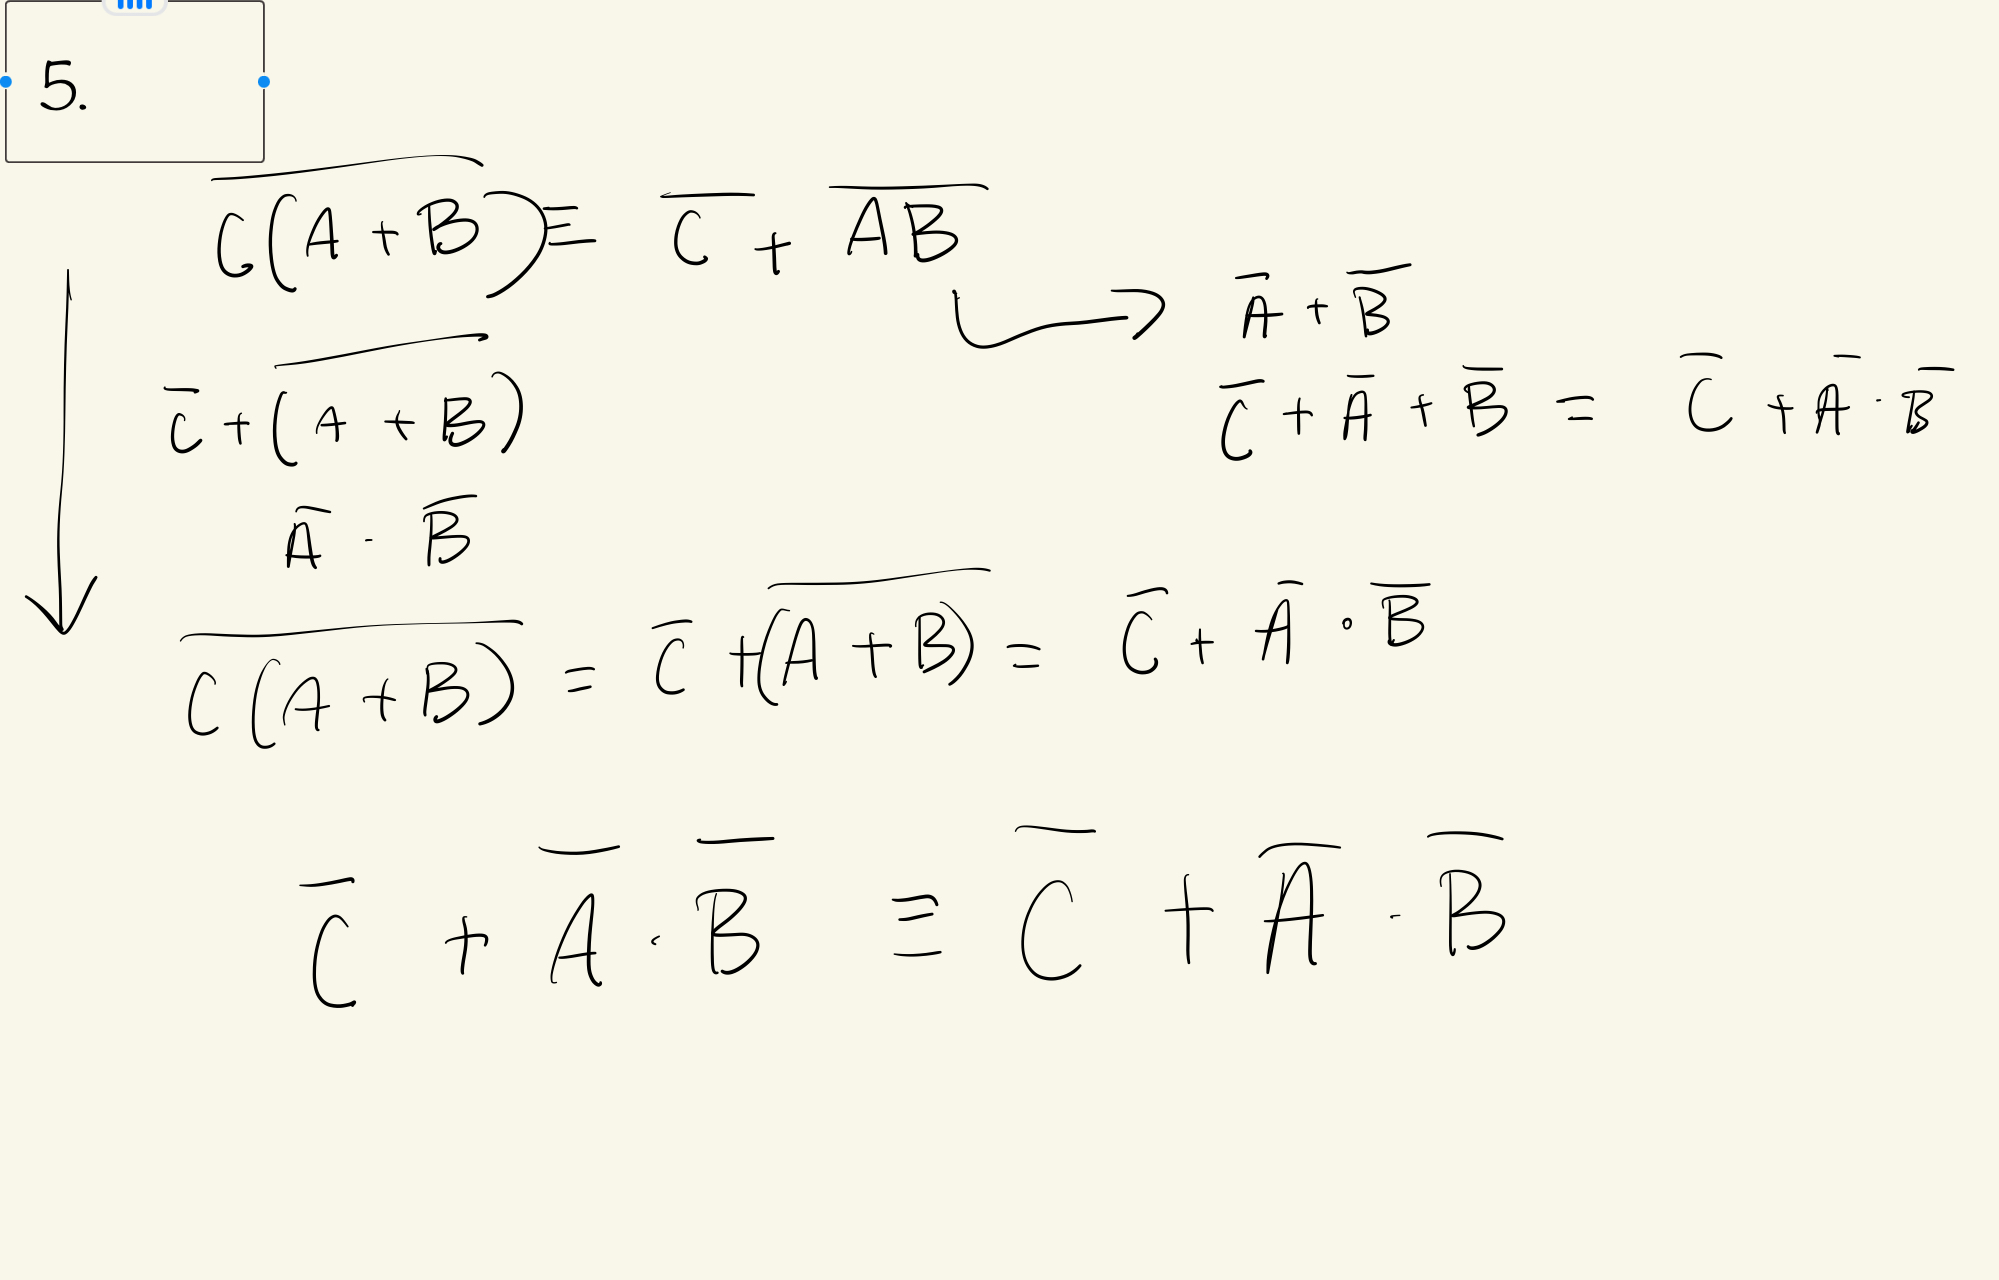 5.
C̅(̅A̅ ̅+̅ ̅B̅)̅ ≡ C̅ + A̅B̅
A̅ + B̅
C̅ + (̅A̅ ̅+̅ ̅B̅)̅
C̅ + A̅ + B̅ = C̅ + A̅ · B̅
A̅ · B̅
C̅(̅A̅ ̅+̅ ̅B̅)̅ = C̅ + (̅A̅ ̅+̅ ̅B̅)̅ = C̅ + A̅ · B̅
C̅ + A̅ · B̅ ≡ C̅ + A̅ · B̅